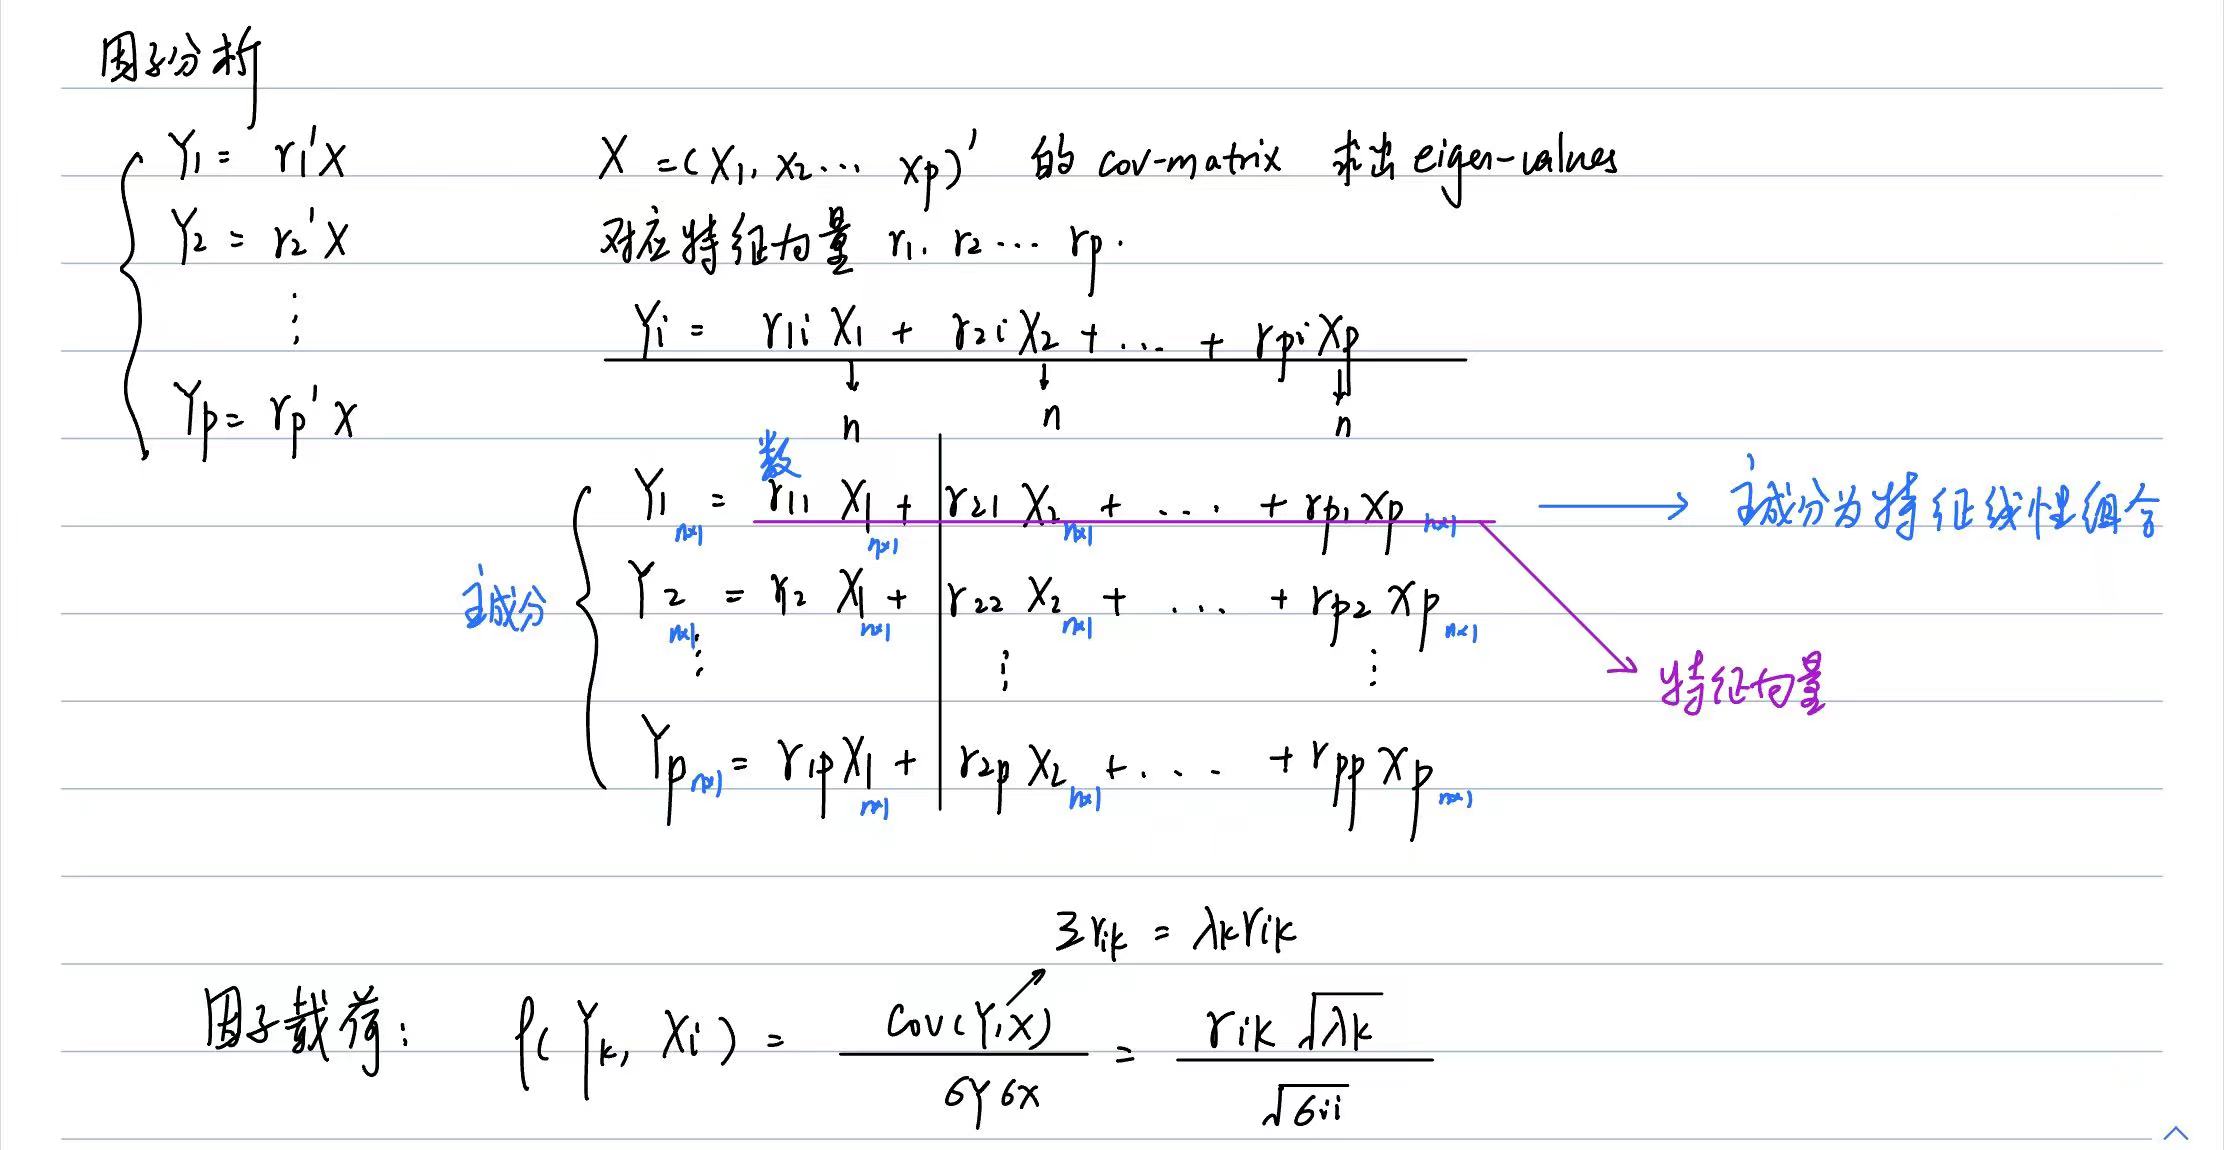 因子分析
Y1 = r1'X
Y2 = r2'X
⋮
Yp = rp'X
X = (X1, X2 ... Xp)' 的 cov-matrix 求出 eigen-values
对应特征向量 r1. r2 ... rp.
Yi = r1i X1 + r2i X2 + ... + rpi Xp
↓ ↓ ↓
n n n
数
Y1 n×1 = r11 X1 n×1 + r21 X2 n×1 + ... + rp1 Xp n×1 → 主成分为特征线性组合
主成分
Y2 n×1 = r12 X1 n×1 + r22 X2 n×1 + ... + rp2 Xp n×1
⋮ ⋮ ⋮
特征向量
Yp n×1 = r1p X1 n×1 + r2p X2 n×1 + ... + rpp Xp n×1
Σrik = λkrik
因子载荷: ρ(Yk, Xi) = Cov(Y,X) / σYσX = rik √λk / √σii